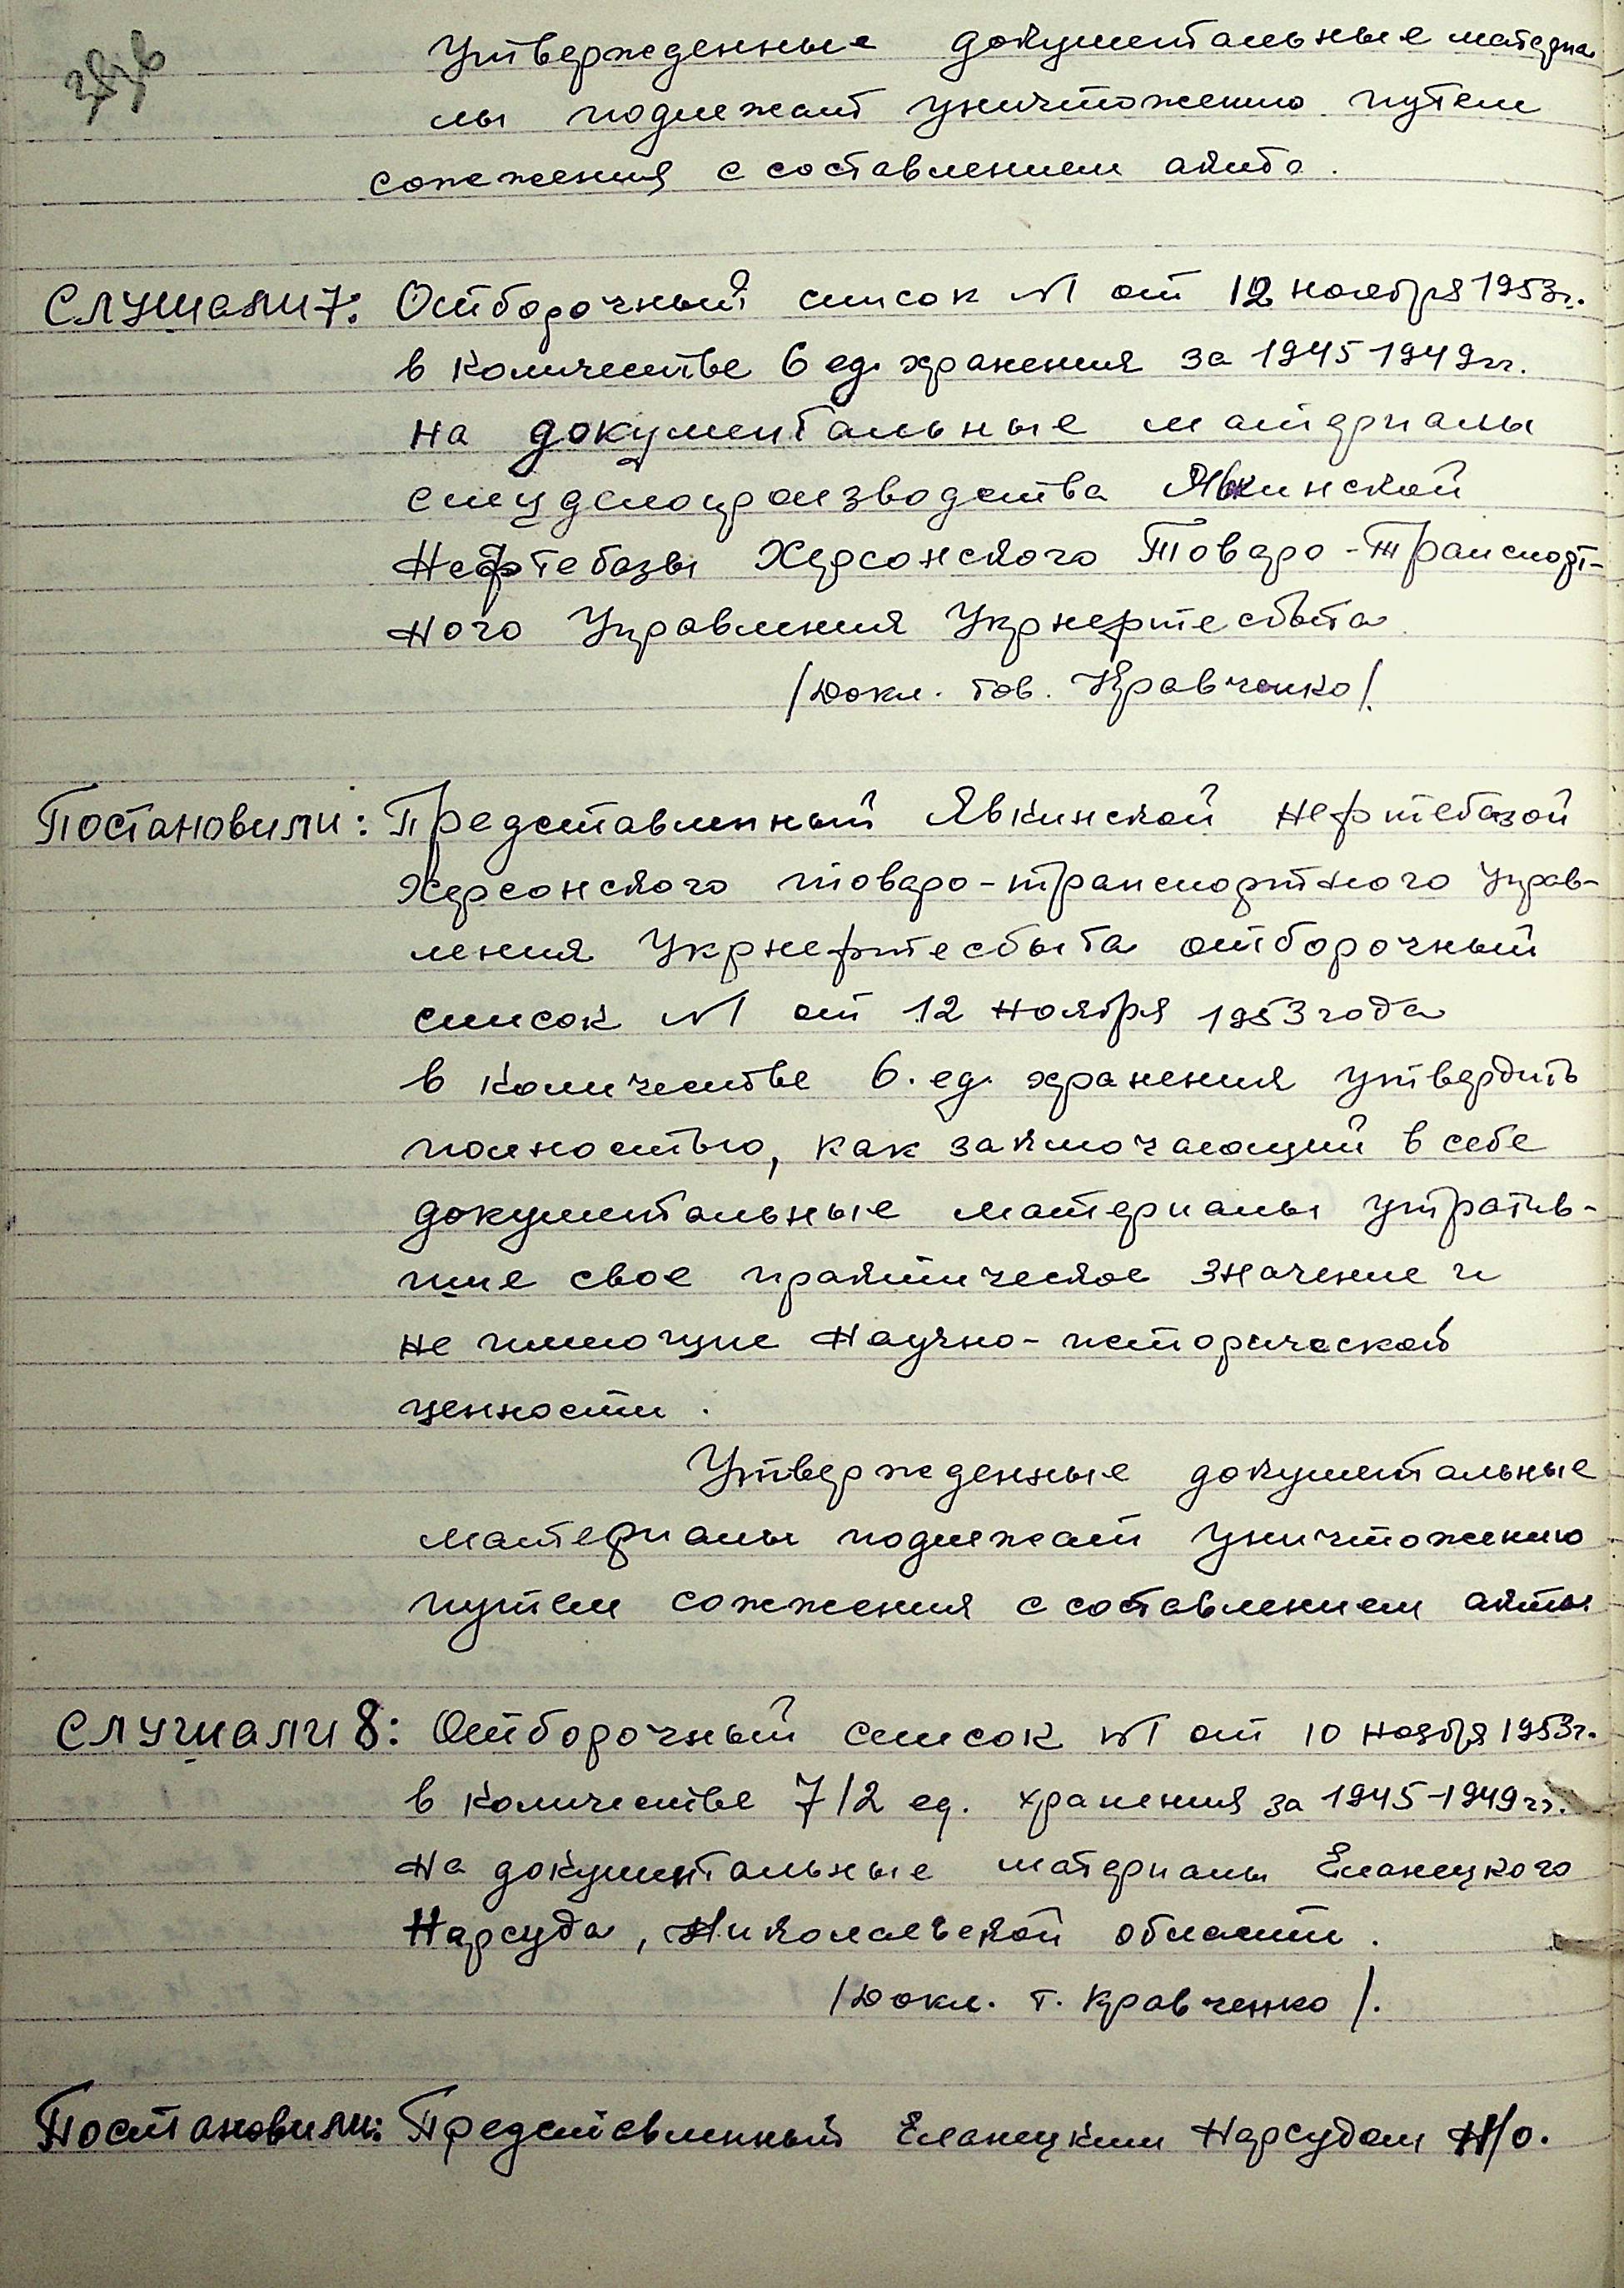 Утвержденные документальные материа
лы подлежат уничтожению путем
сожжения с составлением акта.
Слушали 7: Отборочный список №1 от 12 ноября 1953г.
в количестве 6 ед. хранения за 1945-1949гг.
на документальные материалы
спецделопроизводства Явкинской
Нефтебазы Херсонского Товаро-Транспорт-
ного Управления Укрнефтесбыта
/Докл. тов. Кравченко/.
Постановили: Представленный Явкинской нефтебазой
Херсонского товаро-транспортного Управ-
ления Укрнефтесбыта отборочный
список №1 от 12 ноября 1953 года
в количестве 6. ед. хранения утвердить
полностью, как заключающий в себе
документальные материалы утратив-
шие свое практическое значение и
не имеющие научно-исторической
ценности.
Утвержденные документальные
материалы подлежат уничтожению
путем сожжения с составлением акта
Слушали 8: Отборочный список №1 от 10 ноября 1953г.
в количестве 712 ед. хранения за 1945-1949гг.
на документальные материалы Еланецкого
Нарсуда, Николаевской области.
/Докл. т. Кравченко/.
Постановили: Представленный Еланецким Нарсудом Н/о.